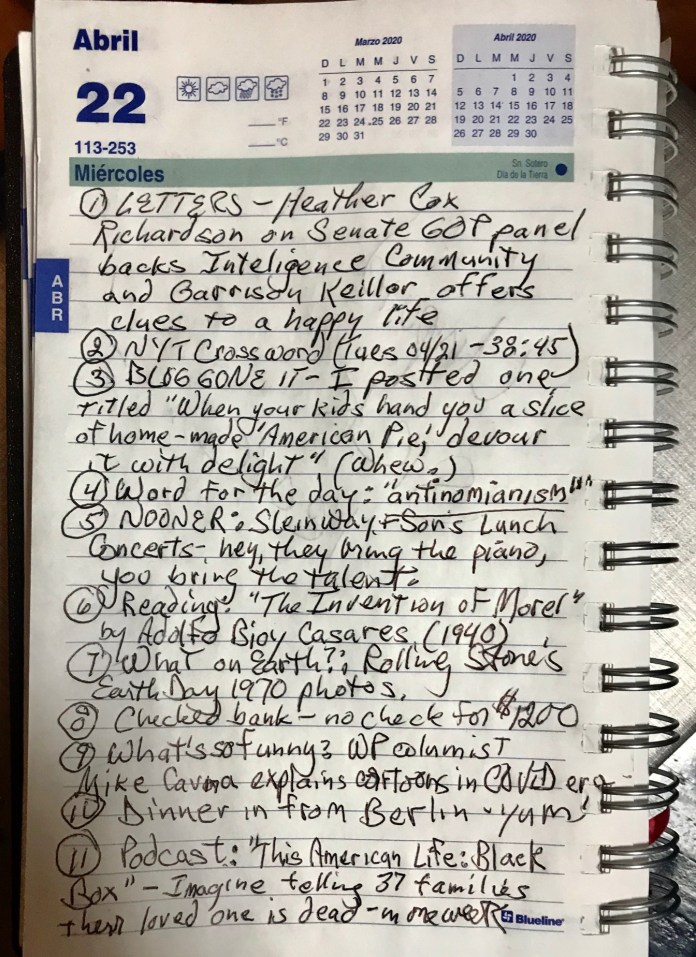 Abril
22
113-253
Marzo 2020
D L M M J V S
1 2 3 4 5 6 7
8 9 10 11 12 13 14
15 16 17 18 19 20 21
22 23 24 25 26 27 28
29 30 31
Abril 2020
D L M M J V S
1 2 3 4
5 6 7 8 9 10 11
12 13 14 15 16 17 18
19 20 21 22 23 24 25
26 27 28 29 30
°F
°C
Miércoles
Sn. Sotero
Día de la Tierra
ABR
① LETTERS - Heather Cox
Richardson on Senate GOP panel
backs Inteligence Community
and Garrison Keillor offers
clues to a happy life
② NYT Crossword (Tues 04/21 - 38:45)
③ BLOG GONE IT - I posted one
titled "When your kids hand you a slice
of home-made 'American Pie,' devour
it with delight" (Whew.)
④ Word for the day: "antinomianism"
⑤ NOONER: Steinway + Sons Lunch
Concerts - hey, they bring the piano,
you bring the talent.
⑥ Reading: "The Invention of Morel"
by Adolfo Bioy Casares (1940)
⑦ What on Earth?: Rolling Stone's
Earth Day 1970 photos.
⑧ Checked bank - no check for $1200
⑨ What's so funny? WP columist
Mike Cavna explains cartoons in COVID era
⑩ Dinner in from Berlin - yum!
⑪ Podcast: "This American Life: Black
Box" - Imagine telling 37 families
their loved one is dead - in one week
Blueline